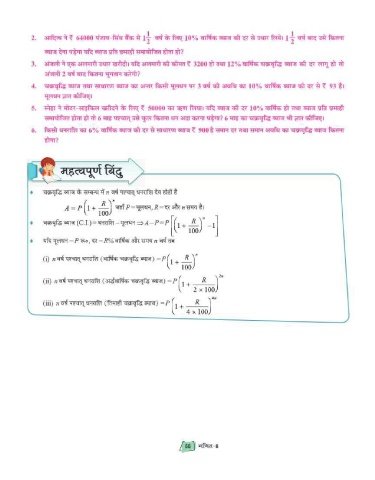 2. आदित्य ने ₹ 64000 पंजाब-सिंध बैंक से 1 1/2 वर्ष के लिए 10% वार्षिक ब्याज की दर से उधार लिये। 1 1/2 वर्ष बाद उसे कितना
ब्याज देना पड़ेगा यदि ब्याज प्रति छमाही समायोजित होता हो?
3. अंजली ने एक अलमारी उधार खरीदी। यदि अलमारी की कीमत ₹ 3200 हो तथा 12% वार्षिक चक्रवृद्धि ब्याज की दर लागू हो तो
अंजली 2 वर्ष बाद कितना भुगतान करेगी?
4. चक्रवृद्धि ब्याज तथा साधारण ब्याज का अन्तर किसी मूलधन पर 3 वर्ष की अवधि का 10% वार्षिक ब्याज की दर से ₹ 93 है।
मूलधन ज्ञात कीजिए।
5. स्नेहा ने मोटर-साइकिल खरीदने के लिए ₹ 50000 का ऋण लिया। यदि ब्याज की दर 10% वार्षिक हो तथा ब्याज प्रति छमाही
समायोजित होता हो तो 6 माह पश्चात् उसे कुल कितना धन अदा करना पड़ेगा? 6 माह का चक्रवृद्धि ब्याज भी ज्ञात कीजिए।
6. किसी धनराशि का 6% वार्षिक ब्याज की दर से साधारण ब्याज ₹ 900 है समान दर तथा समान अवधि का चक्रवृद्धि ब्याज कितना
होगा?
महत्वपूर्ण बिंदु
• चक्रवृद्धि ब्याज के सम्बन्ध में n वर्ष पश्चात् धनराशि देय होती है
A = P(1 + R/100)^n जहाँ P = मूलधन, R = दर और n समय है।
• चक्रवृद्धि ब्याज (C.I.) = धनराशि – मूलधन ⇒ A – P = P[(1 + R/100)^n – 1]
• यदि मूलधन = P रु०, दर = R% वार्षिक और समय n वर्ष तब
(i) n वर्ष पश्चात् धनराशि (वार्षिक चक्रवृद्धि ब्याज) = P(1 + R/100)^n
(ii) n वर्ष पश्चात् धनराशि (अर्द्धवार्षिक चक्रवृद्धि ब्याज) = P(1 + R/(2 × 100))^2n
(iii) n वर्ष पश्चात् धनराशि (तिमाही चक्रवृद्धि ब्याज) = P(1 + R/(4 × 100))^4n
56 गणित-8